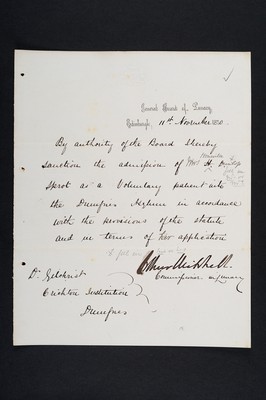 General Board of Lunacy,
Edinburgh, 11th November 1880.
By authority of the Board I hereby
Sanction the admission of Mrs H. Dunlop
Sprot as a Voluntary patient into
the Dumfries Asylum in accordance
with the provisions of the statute
and in terms of her application
Arthur Mitchell
Commissioner in Lunacy
Dr Gilchrist
Crichton Institution
Dumfries